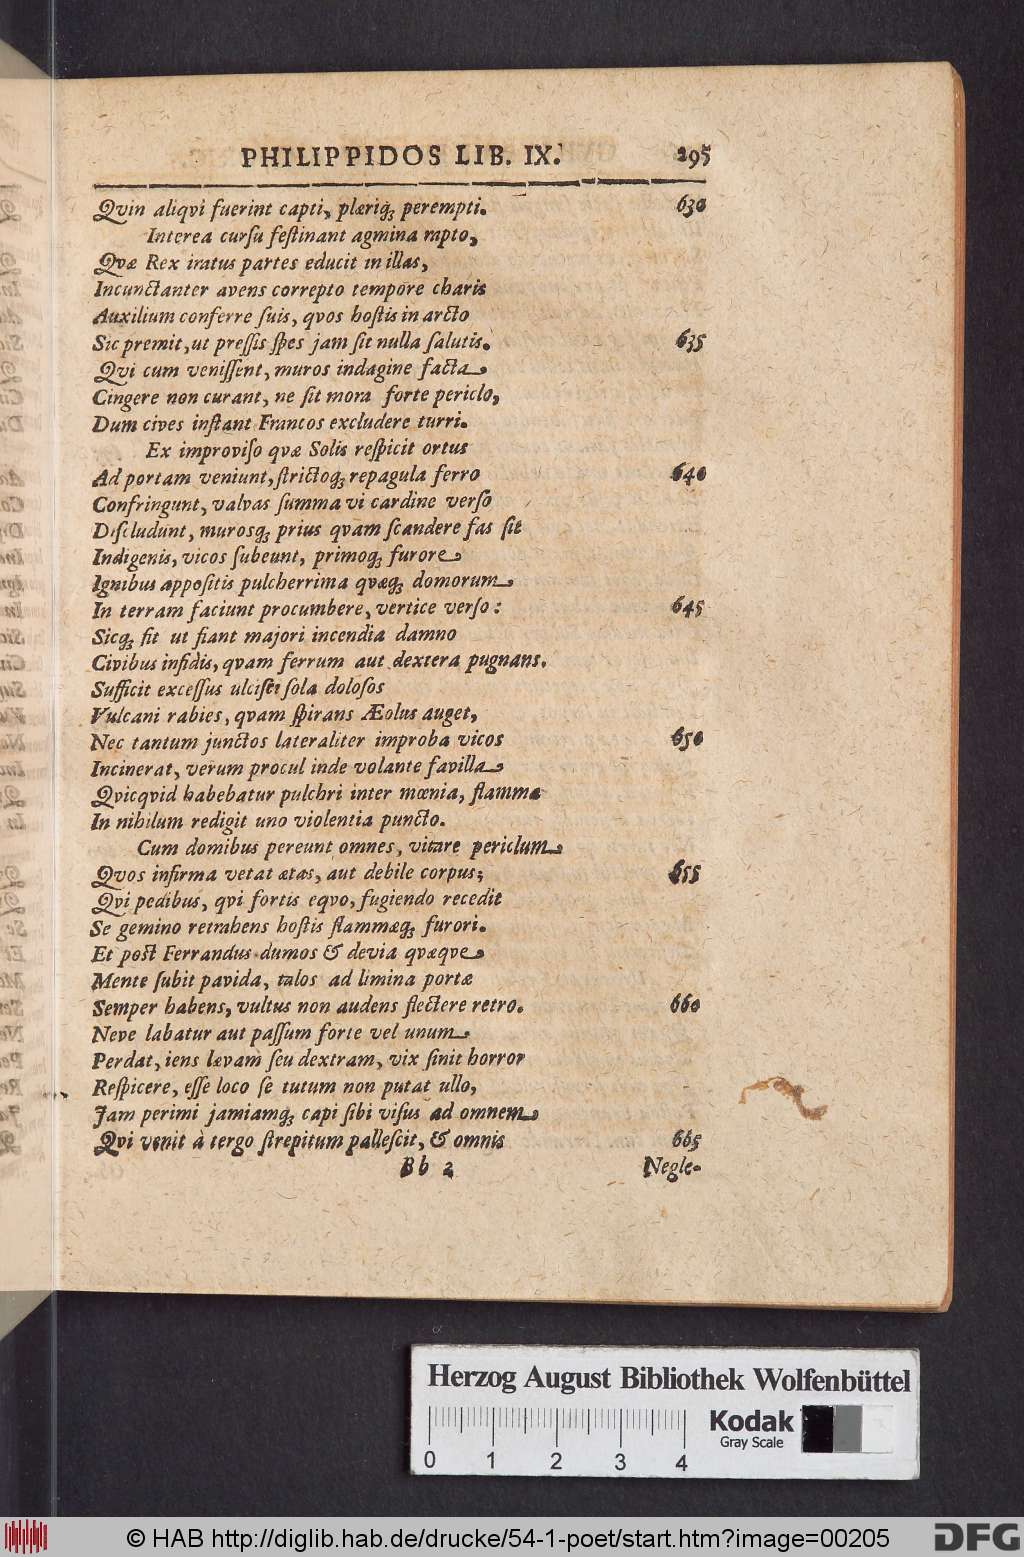 PHILIPPIDOS LIB. IX. 295
Qvin aliqvi fuerint capti, plæriqꝫ perempti. 630
Interea curſu feſtinant agmina rapto,
Qvæ Rex iratus partes educit in illas,
Incunctanter avens correpto tempore charis
Auxilium conferre ſuis, qvos hoſtis in arcto
Sic premit, ut preſſis ſpes jam ſit nulla ſalutis. 635
Qvi cum veniſſent, muros indagine facta
Cingere non curant, ne ſit mora forte periclo,
Dum cives inſtant Francos excludere turri.
Ex improviſo qvæ Solis reſpicit ortus
Ad portam veniunt, ſtrictoqꝫ repagula ferro 640
Confringunt, valvas ſumma vi cardine verſo
Diſcludunt, murosqꝫ prius qvam ſcandere fas ſit
Indigenis, vicos ſubeunt, primoqꝫ furore
Ignibus appoſitis pulcherrima qvæqꝫ domorum
In terram faciunt procumbere, vertice verſo: 645
Sicqꝫ fit ut fiant majori incendia damno
Civibus infidis, qvam ferrum aut dextera pugnans.
Sufficit exceſſus ulciſci ſola doloſos
Vulcani rabies, qvam ſpirans Æolus auget,
Nec tantum junctos lateraliter improba vicos 650
Incinerat, verum procul inde volante favilla
Qvicqvid habebatur pulchri inter mœnia, flammæ
In nihilum redigit uno violentia puncto.
Cum domibus pereunt omnes, vitare periclum
Qvos infirma vetat ætas, aut debile corpus; 655
Qvi pedibus, qvi fortis eqvo, fugiendo recedit
Se gemino retrahens hoſtis flammæqꝫ furori.
Et poſt Ferrandus dumos & devia qvæqve
Mente ſubit pavida, talos ad limina portæ
Semper habens, vultus non audens flectere retro. 660
Neve labatur aut paſſum forte vel unum
Perdat, iens lævam ſeu dextram, vix ſinit horror
Reſpicere, eſſe loco ſe tutum non putat ullo,
Jam perimi jamiamqꝫ capi ſibi viſus ad omnem
Qvi venit à tergo ſtrepitum palleſcit, & omnis 665
Bb 2 Negle-
Herzog August Bibliothek Wolfenbüttel
Kodak
Gray Scale
0 1 2 3 4
© HAB http://diglib.hab.de/drucke/54-1-poet/start.htm?image=00205
DFG